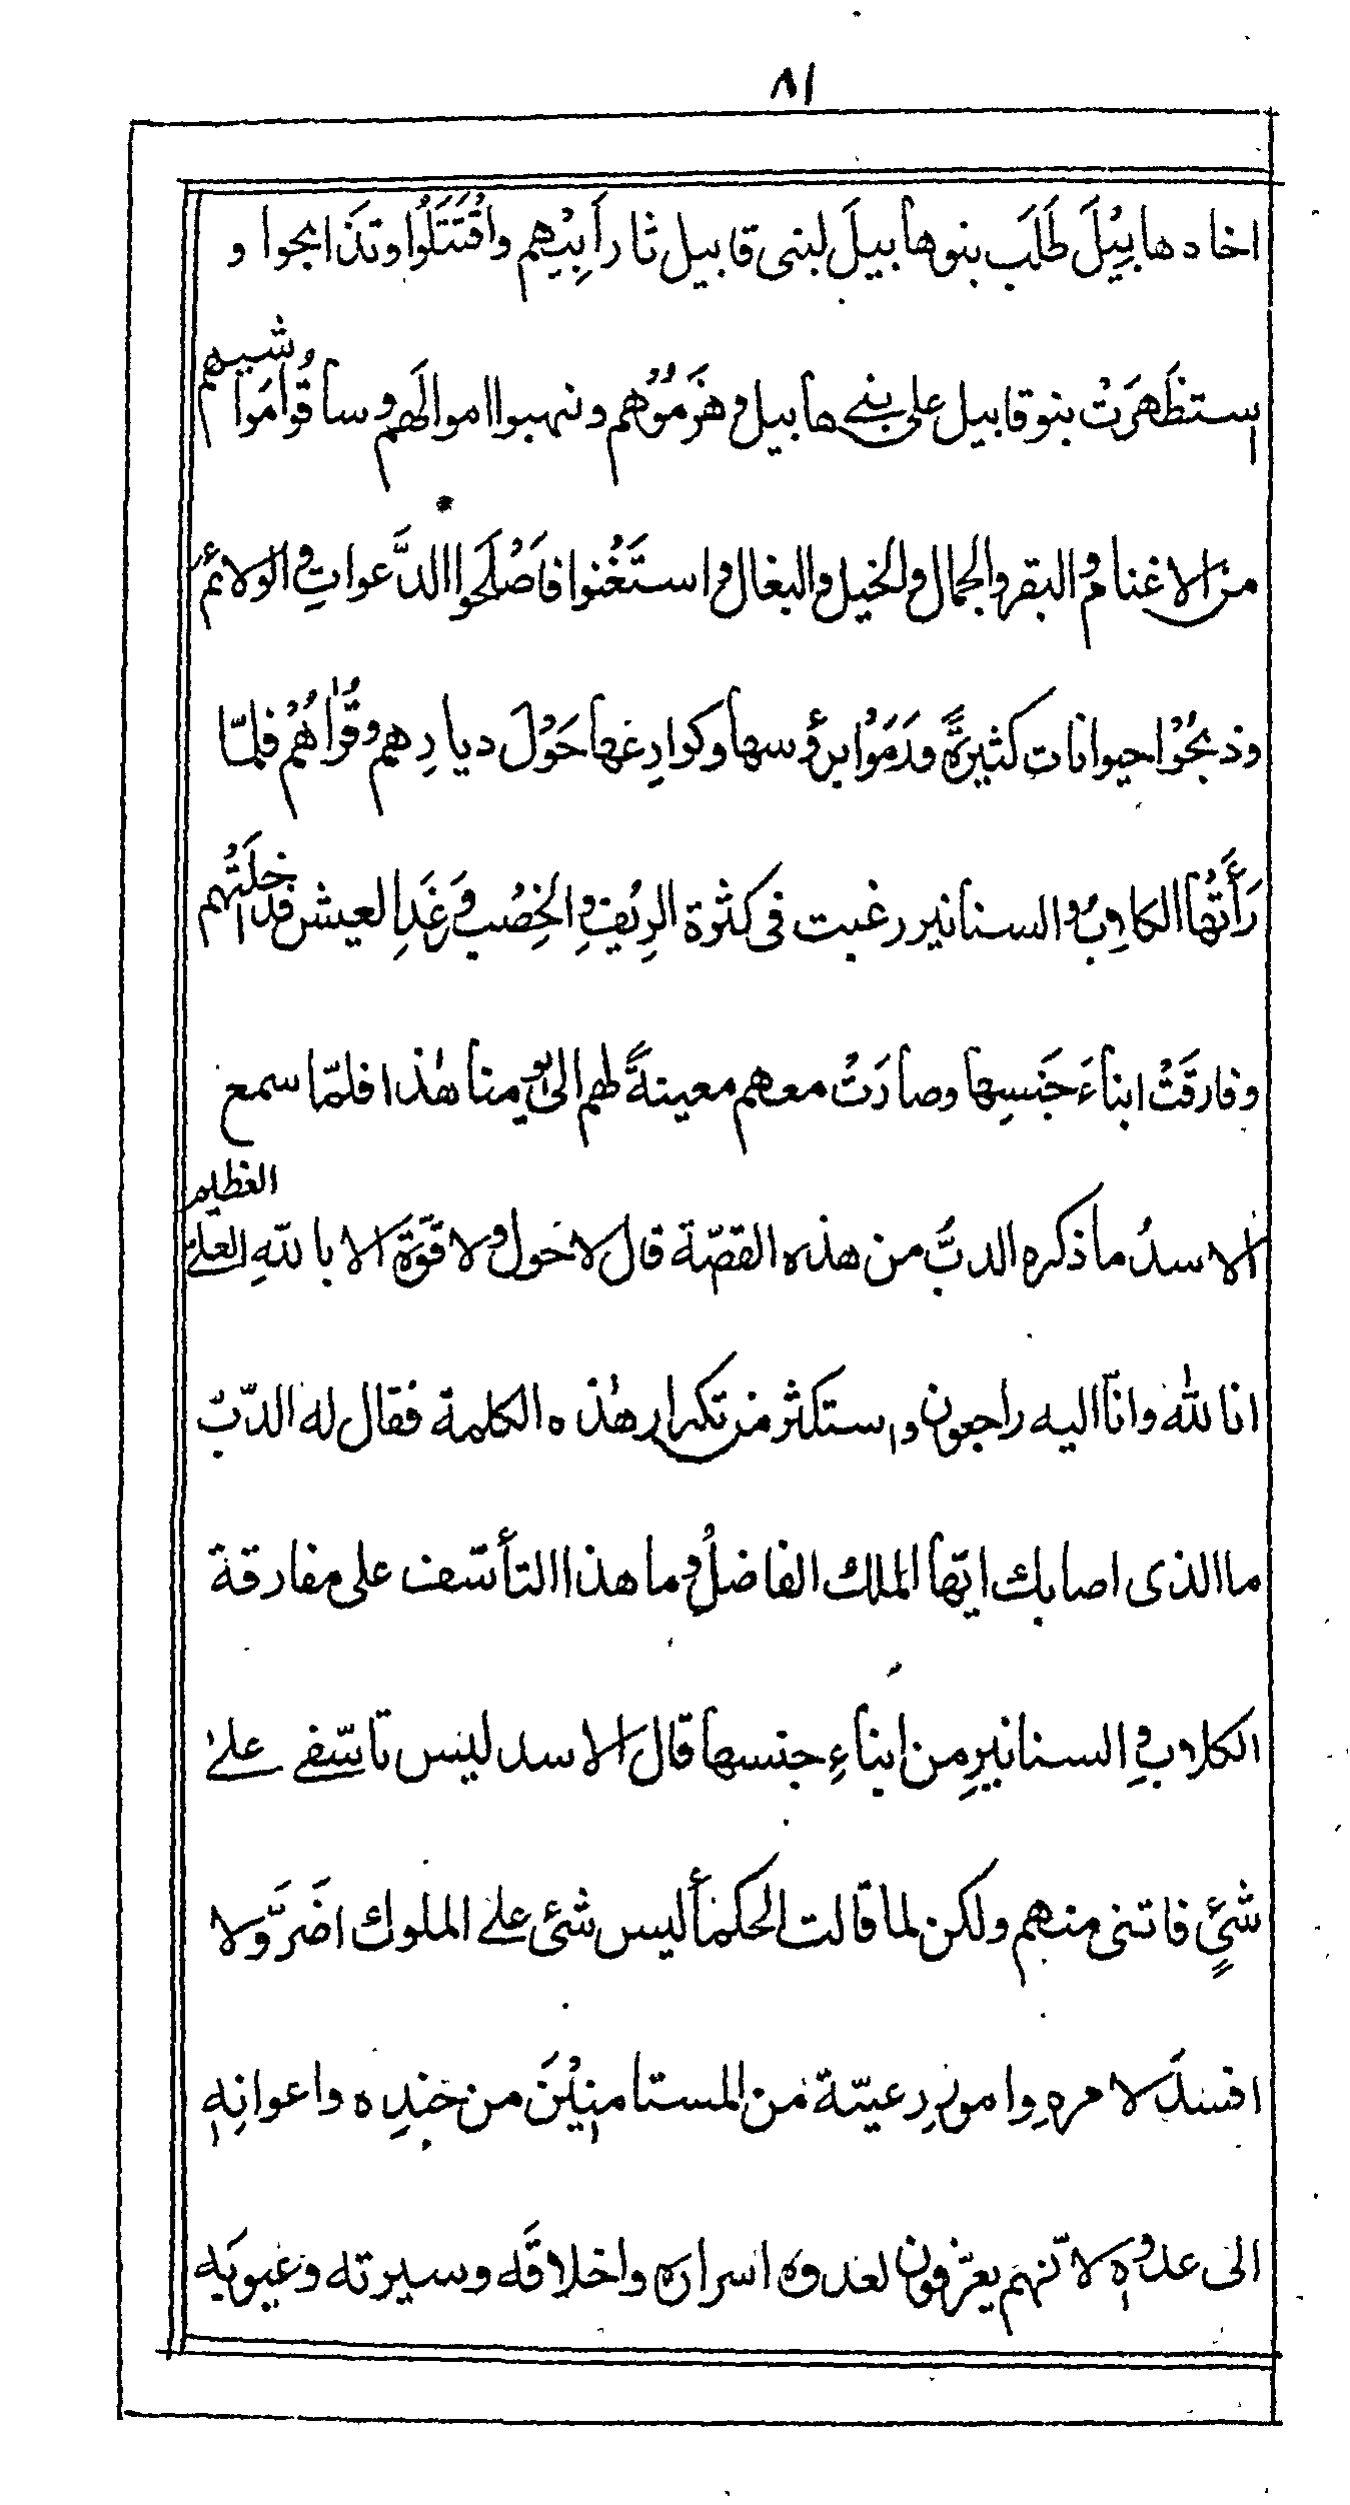 ٨١
اخاه هابِيْلَ طَلَبَ بنو هابيلَ لبنی قابيل ثارَ اَبِيْهِم واقْتَتَلُوا وتَذَابحوا و
استظَهَرَتْ بنو قابيل علی بنے هابيل و هَزَمُوْهم و نهبوا اموالَهم و ساقُوا مَوَاشيهم
من الاغنام و البقر و الجمال و الخيل و البغال و استَغْنوا فاَصْلَحُوا الدَّعواتِ و الولائمَ
و ذبحُوْا حيوانات کثيرةً و رَمَوْا برؤسها و کوارِعِها حَوْلَ ديارِهم و قُرٰاهُمْ فلمّا
رَأَتْها الکلابُ و السنانير رغبت فی کثرة الرِيْفِ و الخِصْب و رَغَدِ العيش فداخلَتْهم
و فارقَتْ ابناءَ جَنسِها و صارَتْ معهم معينةً لهم الی يومنا هٰذا فلمّا سمع
الاسدُ ما ذکره الدبُّ من هذه القصّة قال لا حول و لا قوّةَ الا باللّهِ العلی العظيم
انا للّٰه و انّا اليه راجعون و استکثر من تکرار هٰذه الکلمة فقال له الدّبّ
ما الذی اصابك ايّها الملك الفاضلُ و ما هذا التأسّف علی مفارقة
الکلابِ و السنانيرِ من ابناءِ جنسها قال الاسد ليس تاسّفی علیٰ
شئٍ فاتنی منهم ولکن لما قالت الحکمأ ليس شئ علی الملوك اضَرَّ ولا
افسدَ لامرهِ و امورِ رعيّة من المستامنِيْنَ من جندِه و اعوانِهٖ
الی عدُوِّهٖ لانّهم يعرّفون لعدوه اسراره و اخلاقَه و سيرته و عيوبَه